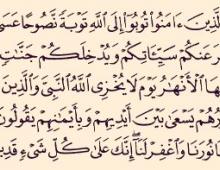 لَّذِينَ ءَامَنُوا۟ تُوبُوٓا۟ إِلَى ٱللَّهِ تَوْبَةً نَّصُوحًا عَسَىٰ
عَنكُمْ سَيِّـَٔاتِكُمْ وَيُدْخِلَكُمْ جَنَّـٰتٍ
ٱلْأَنْهَـٰرُ يَوْمَ لَا يُخْزِى ٱللَّهُ ٱلنَّبِىَّ وَٱلَّذِينَ
يَسْعَىٰ بَيْنَ أَيْدِيهِمْ وَبِأَيْمَـٰنِهِمْ يَقُولُونَ
نُورَنَا وَٱغْفِرْ لَنَآ إِنَّكَ عَلَىٰ كُلِّ شَىْءٍ قَدِي